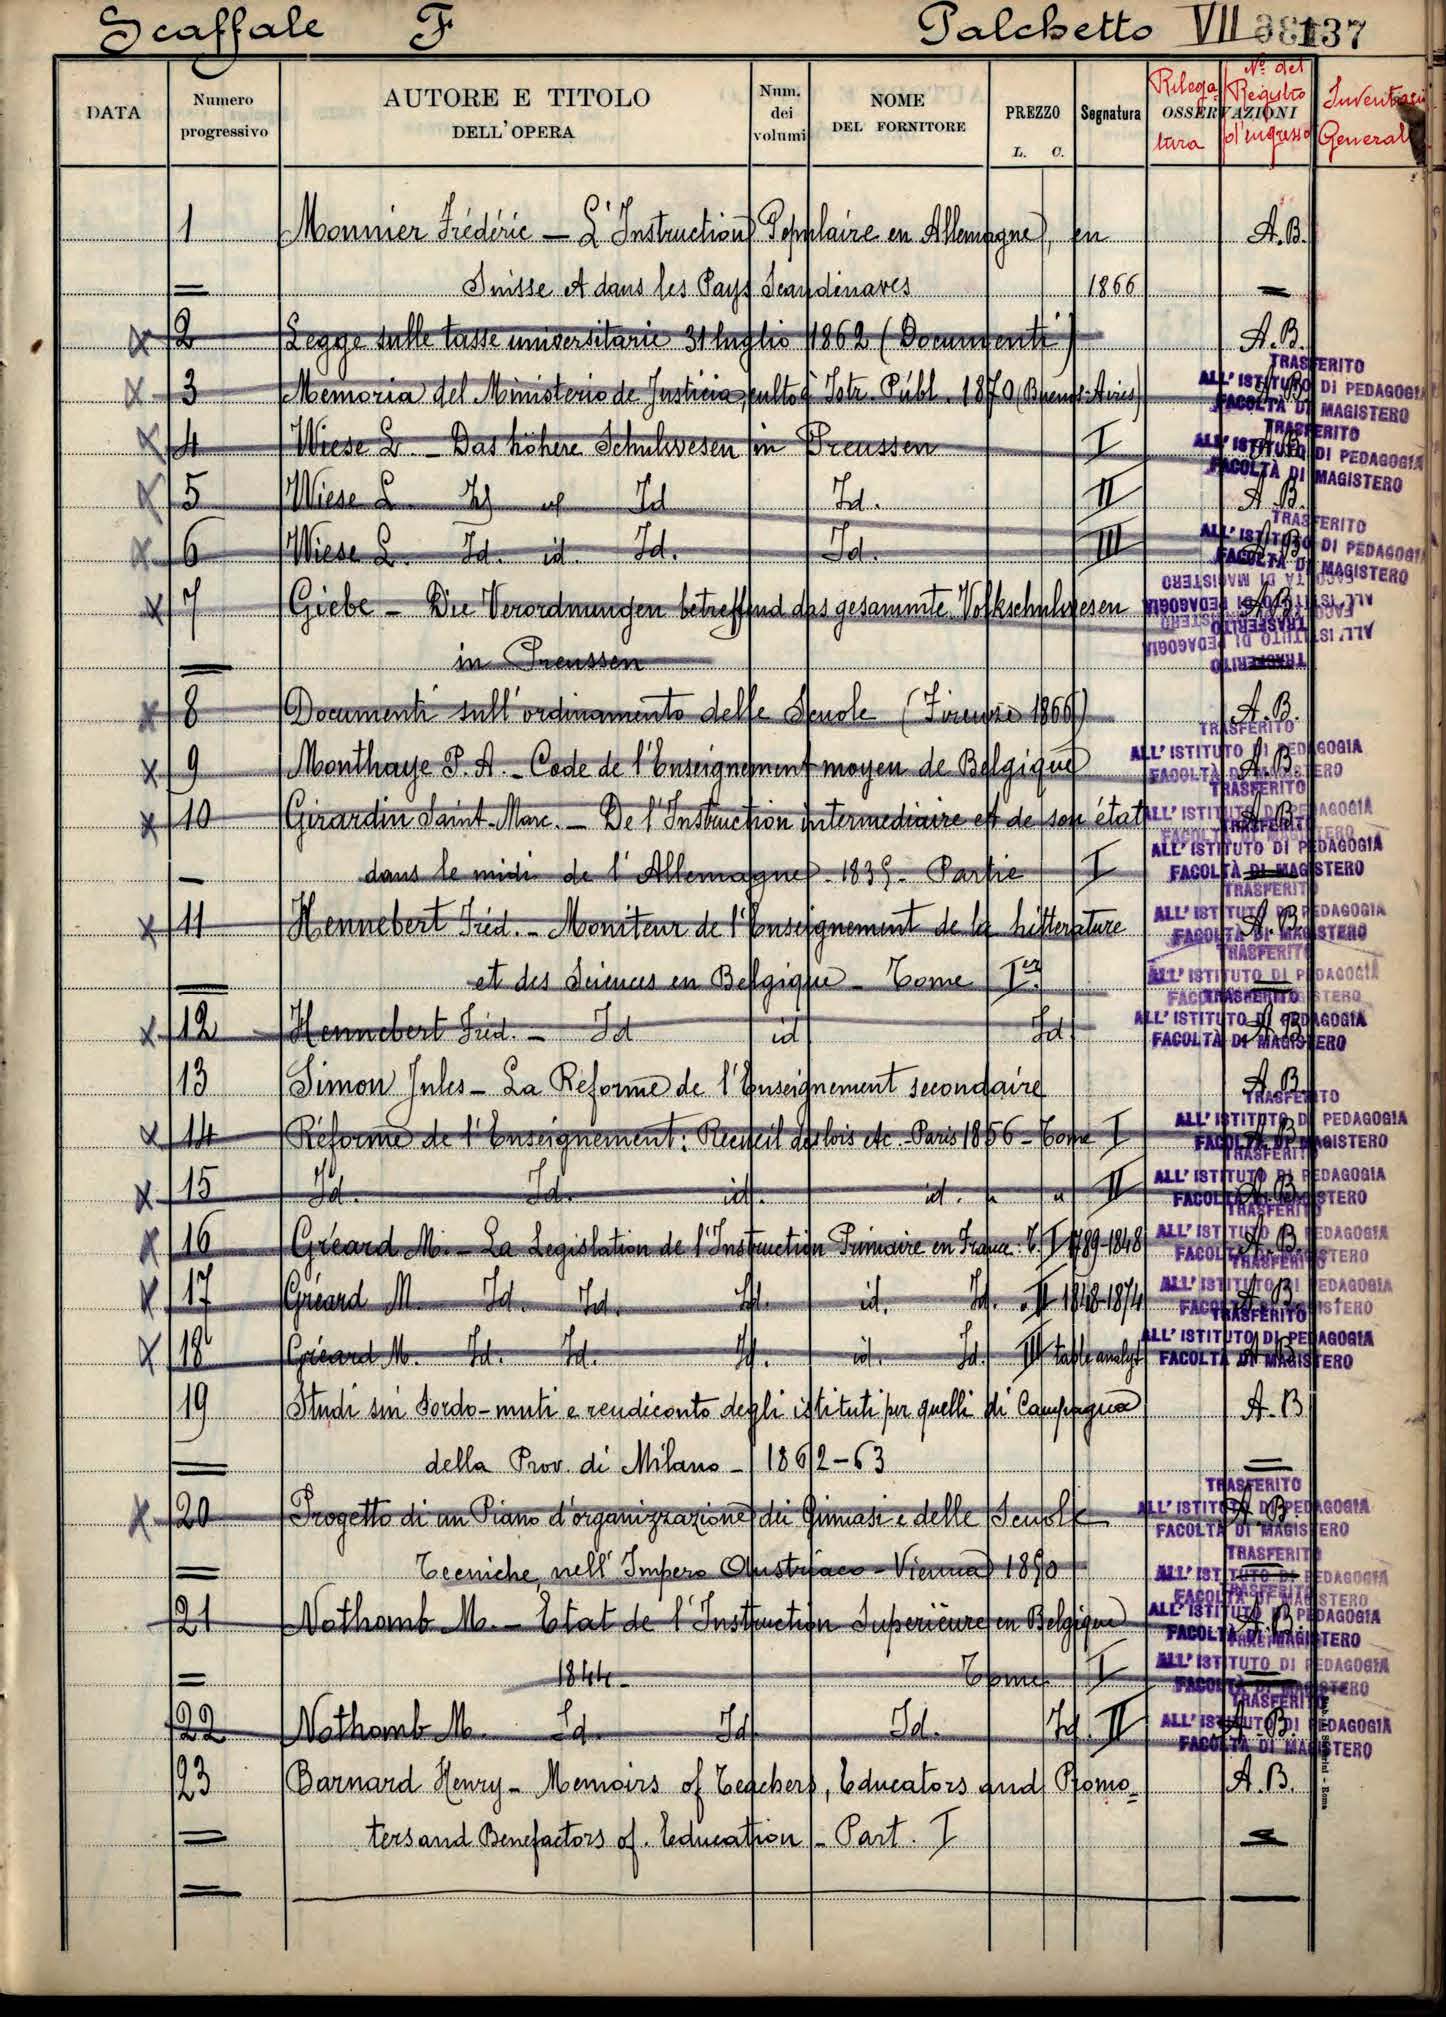 Scaffale F Palchetto VII 137
DATA
Numero progressivo
AUTORE E TITOLO DELL'OPERA
Num. dei volumi
NOME DEL FORNITORE
PREZZO L. C.
Segnatura
OSSERVAZIONI
Rilegatura
N° del Registro d'ingresso
Inventario Generale
1 Monnier Frédéric — L'Instruction Populaire en Allemagne, en A.B.
Suisse et dans les Pays Scandinaves 1866
2 Legge sulle tasse universitarie 31 luglio 1862 (Documenti) A.B.
TRASFERITO ALL'ISTITUTO DI PEDAGOGIA FACOLTÀ DI MAGISTERO
3 Memoria del Ministerio de Justicia, culto è Istr. Públ. 1870 (Buenos-Aires) A.B.
TRASFERITO ALL'ISTITUTO DI PEDAGOGIA FACOLTÀ DI MAGISTERO
4 Wiese L. — Das höhere Schulwesen in Preussen I A.B.
5 Wiese L. Id id Id Id. II A.B.
TRASFERITO ALL'ISTITUTO DI PEDAGOGIA FACOLTÀ DI MAGISTERO
6 Wiese L. Id. id. Id. Id. III A.B.
7 Giebe — Die Verordnungen betreffend das gesammte Volkschulwesen A.B.
TRASFERITO ALL'ISTITUTO DI PEDAGOGIA FACOLTÀ DI MAGISTERO
TRASFERITO ALL'ISTITUTO DI PEDAGOGIA FACOLTÀ DI MAGISTERO
in Preussen
8 Documenti sull'ordinamento delle Scuole (Firenze 1866) A.B.
TRASFERITO ALL'ISTITUTO DI PEDAGOGIA FACOLTÀ DI MAGISTERO
9 Monthaye P. A. — Code de l'Enseignement moyen de Belgique A.B.
TRASFERITO ALL'ISTITUTO DI PEDAGOGIA FACOLTÀ DI MAGISTERO
10 Girardin Saint-Marc. — De l'Instruction intermediaire et de son état A.B.
TRASFERITO ALL'ISTITUTO DI PEDAGOGIA FACOLTÀ DI MAGISTERO
dans le midi de l'Allemagne - 1835 - Partie I
TRASFERITO ALL'ISTITUTO DI PEDAGOGIA FACOLTÀ DI MAGISTERO
11 Hennebert Fréd. — Moniteur de l'Enseignement de la littérature A.B.
TRASFERITO ALL'ISTITUTO DI PEDAGOGIA FACOLTÀ DI MAGISTERO
et des Sciences en Belgique — Tome Ier
TRASFERITO ALL'ISTITUTO DI PEDAGOGIA FACOLTÀ DI MAGISTERO
12 Hennebert Fréd. — Id id Id A.B.
13 Simon Jules — La Reforme de l'Enseignement secondaire A.B.
TRASFERITO ALL'ISTITUTO DI PEDAGOGIA FACOLTÀ DI MAGISTERO
14 Réforme de l'Enseignement: Recueil des lois etc. - Paris 1856 - Tome I A.B.
TRASFERITO ALL'ISTITUTO DI PEDAGOGIA FACOLTÀ DI MAGISTERO
15 Id. Id. id. id. " " II A.B.
TRASFERITO ALL'ISTITUTO DI PEDAGOGIA FACOLTÀ DI MAGISTERO
16 Gréard M. — La Legislation de l'Instruction Primaire en France: T. I 1789-1848 A.B.
TRASFERITO ALL'ISTITUTO DI PEDAGOGIA FACOLTÀ DI MAGISTERO
17 Gréard M. Id. Id. Id. id. Id. " II 1848-1874 A.B.
TRASFERITO ALL'ISTITUTO DI PEDAGOGIA FACOLTÀ DI MAGISTERO
18 Gréard M. Id. Id. Id. id. Id. III table analyt A.B.
19 Studi sui Sordo-muti e rendiconto degli istituti per quelli di Campagna A.B.
della Prov. di Milano — 1862-63
TRASFERITO ALL'ISTITUTO DI PEDAGOGIA FACOLTÀ DI MAGISTERO
20 Progetto di un Piano d'organizzazione dei Ginnasi e delle Scuole A.B.
TRASFERITO ALL'ISTITUTO DI PEDAGOGIA FACOLTÀ DI MAGISTERO
Tecniche, nell'Impero Austriaco - Vienna 1850
TRASFERITO ALL'ISTITUTO DI PEDAGOGIA FACOLTÀ DI MAGISTERO
21 Nothomb M. — Etat de l'Instruction Superièure en Belgique A.B.
TRASFERITO ALL'ISTITUTO DI PEDAGOGIA FACOLTÀ DI MAGISTERO
1844 - Tome I
TRASFERITO ALL'ISTITUTO DI PEDAGOGIA FACOLTÀ DI MAGISTERO
22 Nothomb M. Id. Id Id. Id. II A.B.
23 Barnard Henry — Memoirs of Teachers, Educators and Promo= A.B.
ters and Benefactors of. Education — Part. I